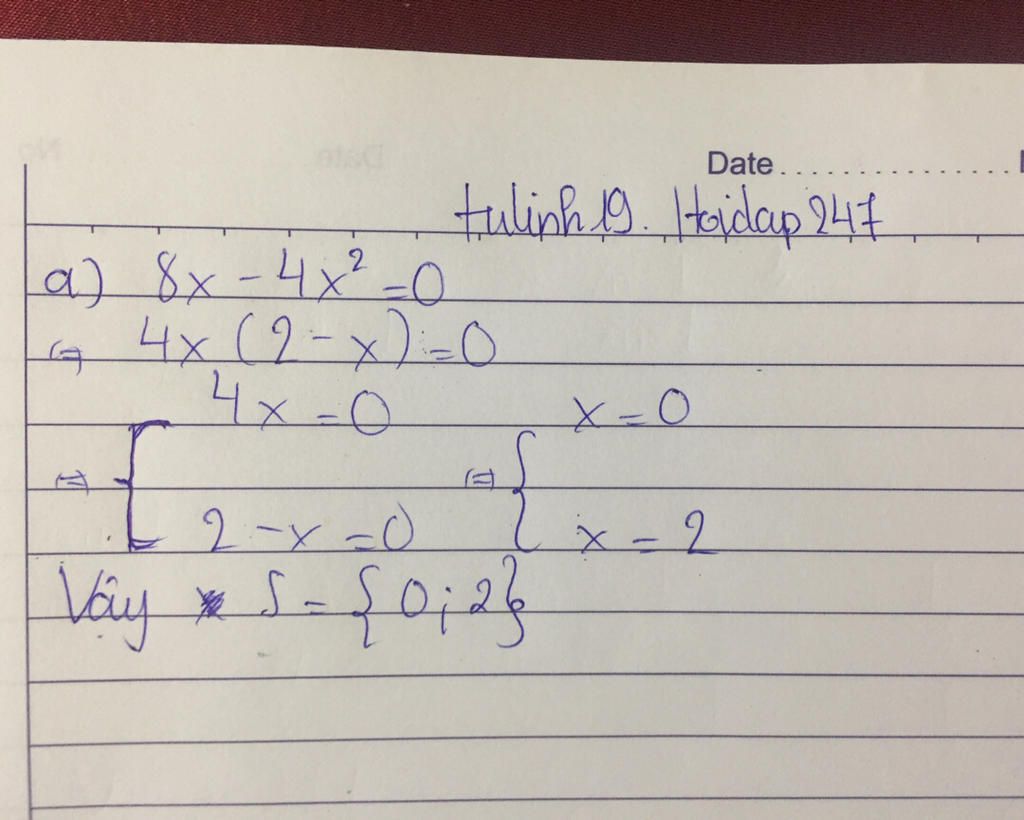 Date
tulinh19. Hoidap247
a) 8x - 4x² = 0
⇔ 4x (2 - x) = 0
⇔ [ 4x = 0 ⇔ { x = 0
2 - x = 0 x = 2
Vậy S = {0; 2}